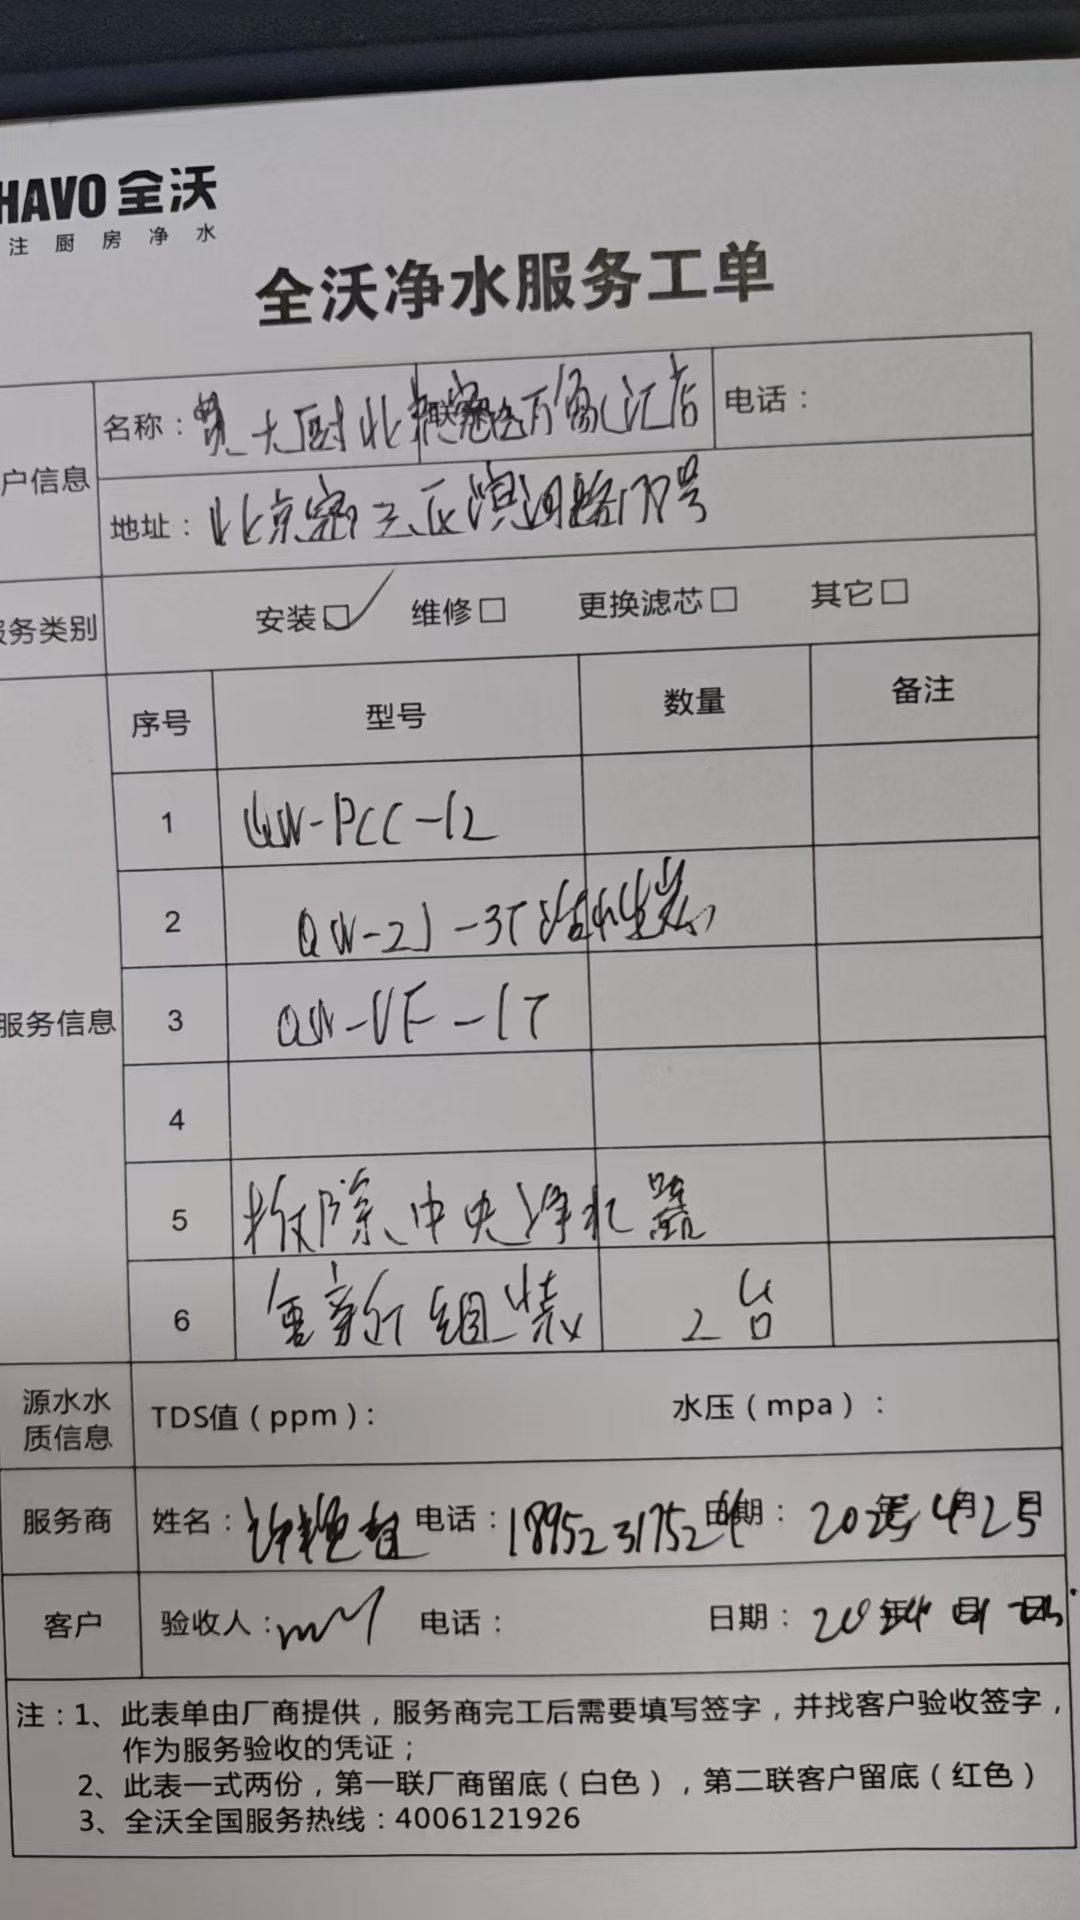 HAVO 全沃
注厨房净水
全沃净水服务工单
户信息
名称：费大厨北京 万象汇店
电话：
地址：北京密云区滨河路178号
服务类别
安装☑ 维修□ 更换滤芯□ 其它□
服务信息
序号 型号 数量 备注
1 QW-PCC-12
2 QW-2J-3T活性炭
3 QW-UF-1T
4
5 拆除中央净水器
6 重新组装 2台
源水水质信息
TDS值（ppm）： 水压（mpa）：
服务商 姓名：许 电话：18952317524 日期：2025年4月25日
客户 验收人： 电话： 日期： 年 月 日
注：1、此表单由厂商提供，服务商完工后需要填写签字，并找客户验收签字，
作为服务验收的凭证；
2、此表一式两份，第一联厂商留底（白色），第二联客户留底（红色）
3、全沃全国服务热线：4006121926